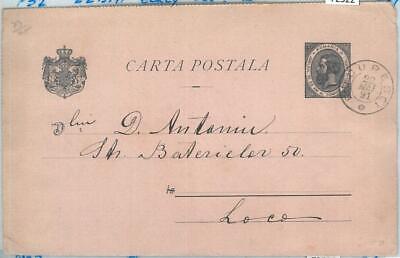 CARTA POSTALA
Dlui D. Antoniu
Str. Bateriilor 50.
la
Loco